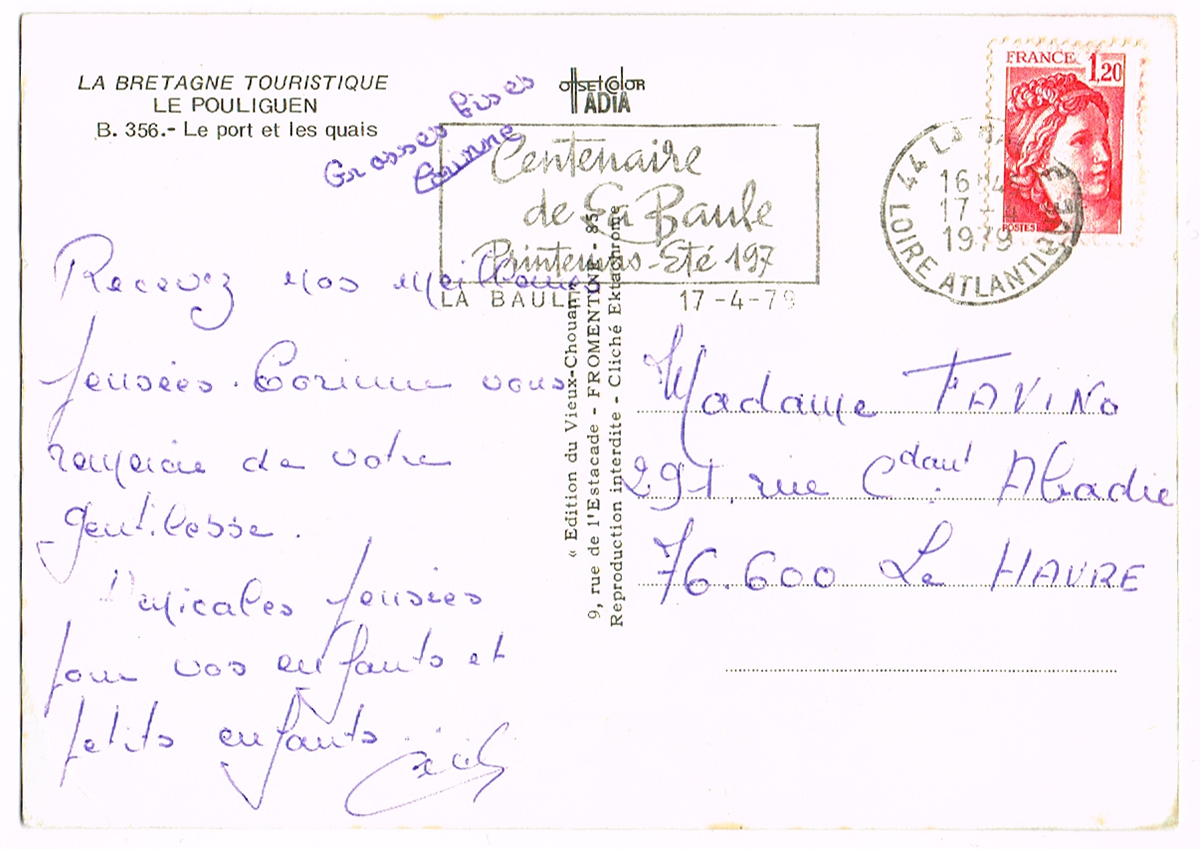 LA BRETAGNE TOURISTIQUE
LE POULIGUEN
B. 356.- Le port et les quais
OffSETCOLOR
ADIA
Grosses bises
Corinne
Centenaire
de La Baule
Printemps-Eté 197
LA BAULE 17-4-79
FRANCE 1,20
POSTES
44 LA
16H4
17-4
1979
LOIRE ATLANTIQUE
Recevez nos meilleures
pensées. Corinne vous
remercie de votre
gentillesse.
Amicales pensées
pour vos enfants et
petits enfants...
« Edition du Vieux-Chouan
9, rue de l'Estacade - FROMENTINE - 85
Reproduction interdite - Cliché Ektachrome
Madame FAVINO
291, rue Cdant Abadie
76.600 Le HAVRE